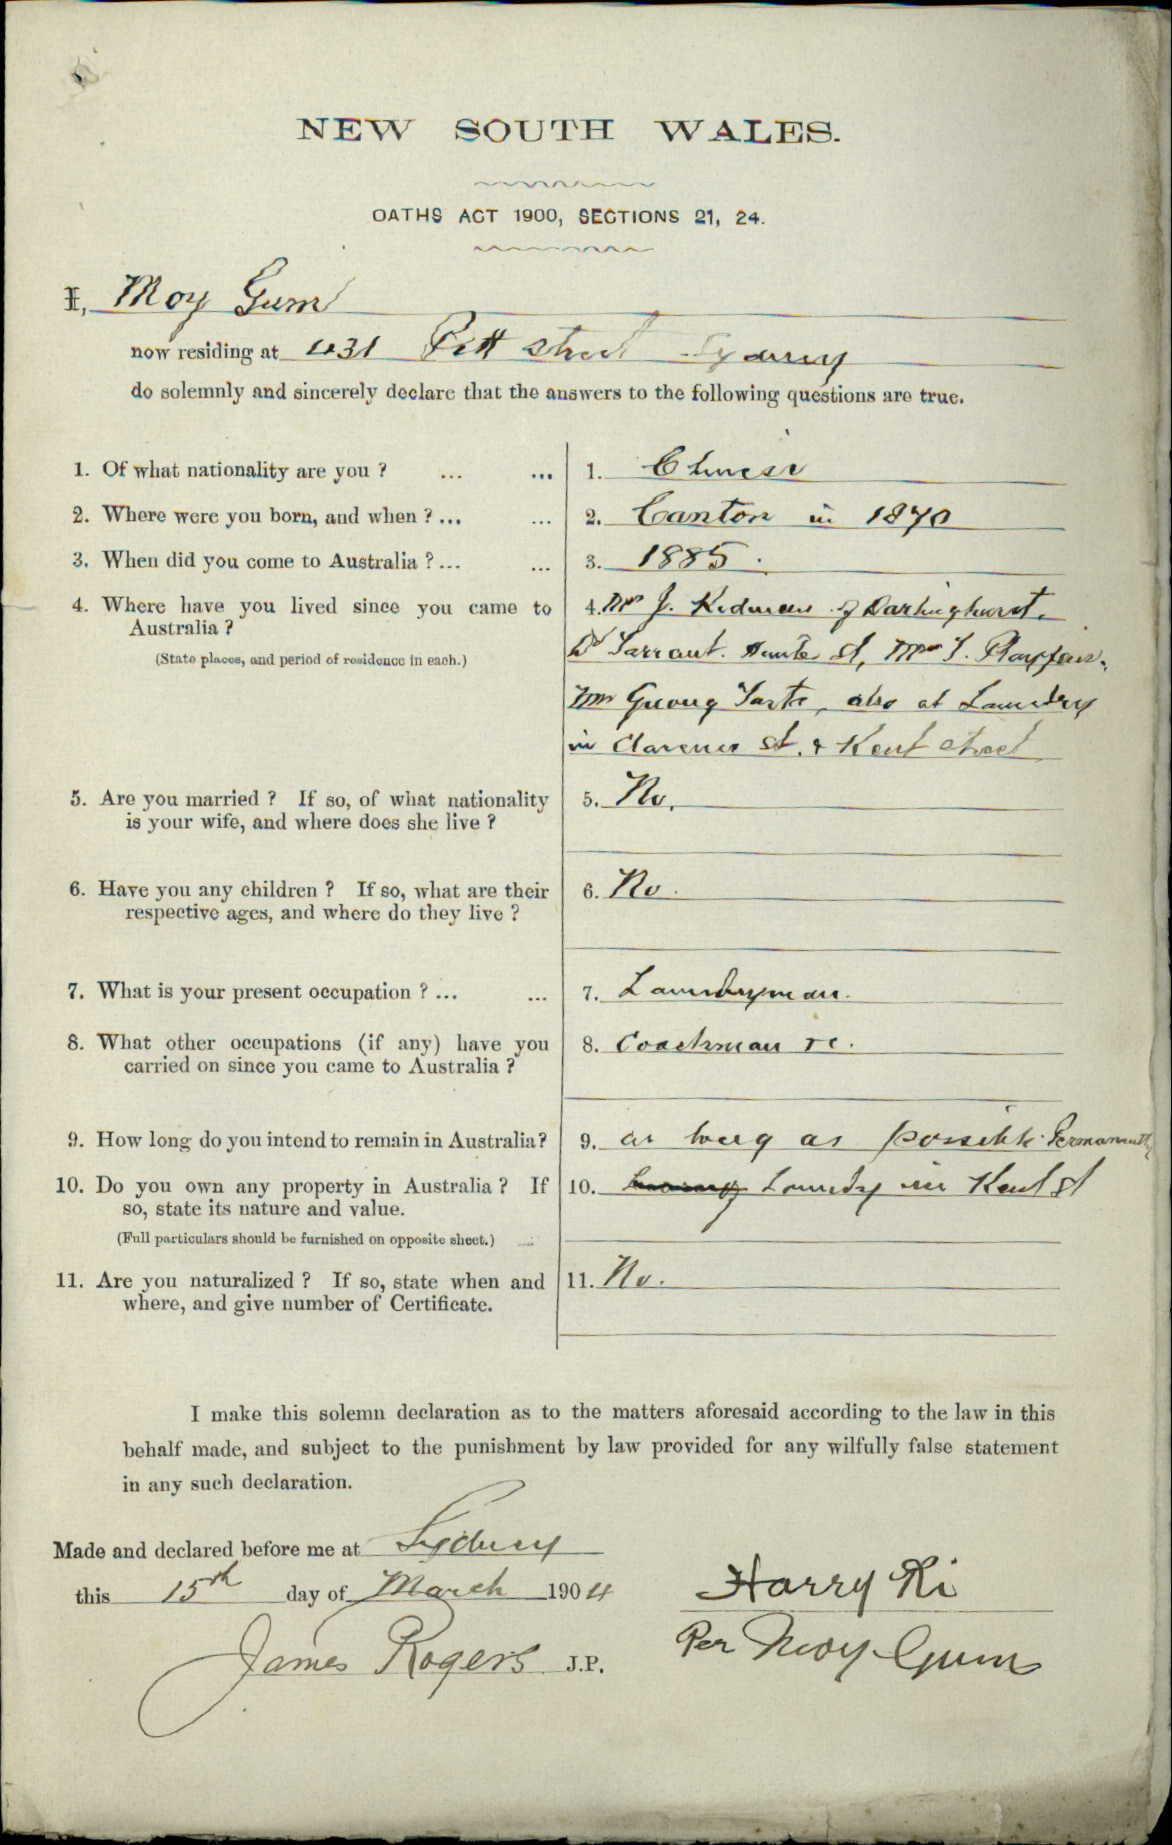 NEW SOUTH WALES.
OATHS ACT 1900, SECTIONS 21, 24.
I, Moy Gum
now residing at 431 Pitt street Sydney
do solemnly and sincerely declare that the answers to the following questions are true.
1. Of what nationality are you ? ... ... 1. Chinese
2. Where were you born, and when ? ... ... 2. Canton in 1870
3. When did you come to Australia ? ... ... 3. 1885.
4. Where have you lived since you came to 4. Mr J. Kidman of Darlinghurst.
Australia ?
(State places, and period of residence in each.) Dr Tarrant. Hunter St, Mr T. Playfair.
Mr Quong Tart, also at Laundry
in Clarence St. & Kent street
5. Are you married ? If so, of what nationality 5. No.
is your wife, and where does she live ?
6. Have you any children ? If so, what are their 6. No.
respective ages, and where do they live ?
7. What is your present occupation ? ... ... 7. Laundryman.
8. What other occupations (if any) have you 8. Coachman
carried on since you came to Australia ?
9. How long do you intend to remain in Australia? 9. as long as possible. Permanently
10. Do you own any property in Australia ? If 10. Laundry in Kent St
so, state its nature and value.
(Full particulars should be furnished on opposite sheet.) ...
11. Are you naturalized ? If so, state when and 11. No.
where, and give number of Certificate.
I make this solemn declaration as to the matters aforesaid according to the law in this
behalf made, and subject to the punishment by law provided for any wilfully false statement
in any such declaration.
Made and declared before me at Sydney
this 15th day of March 1904
Harry Ki
James Rogers J.P.
Per Moy Gum